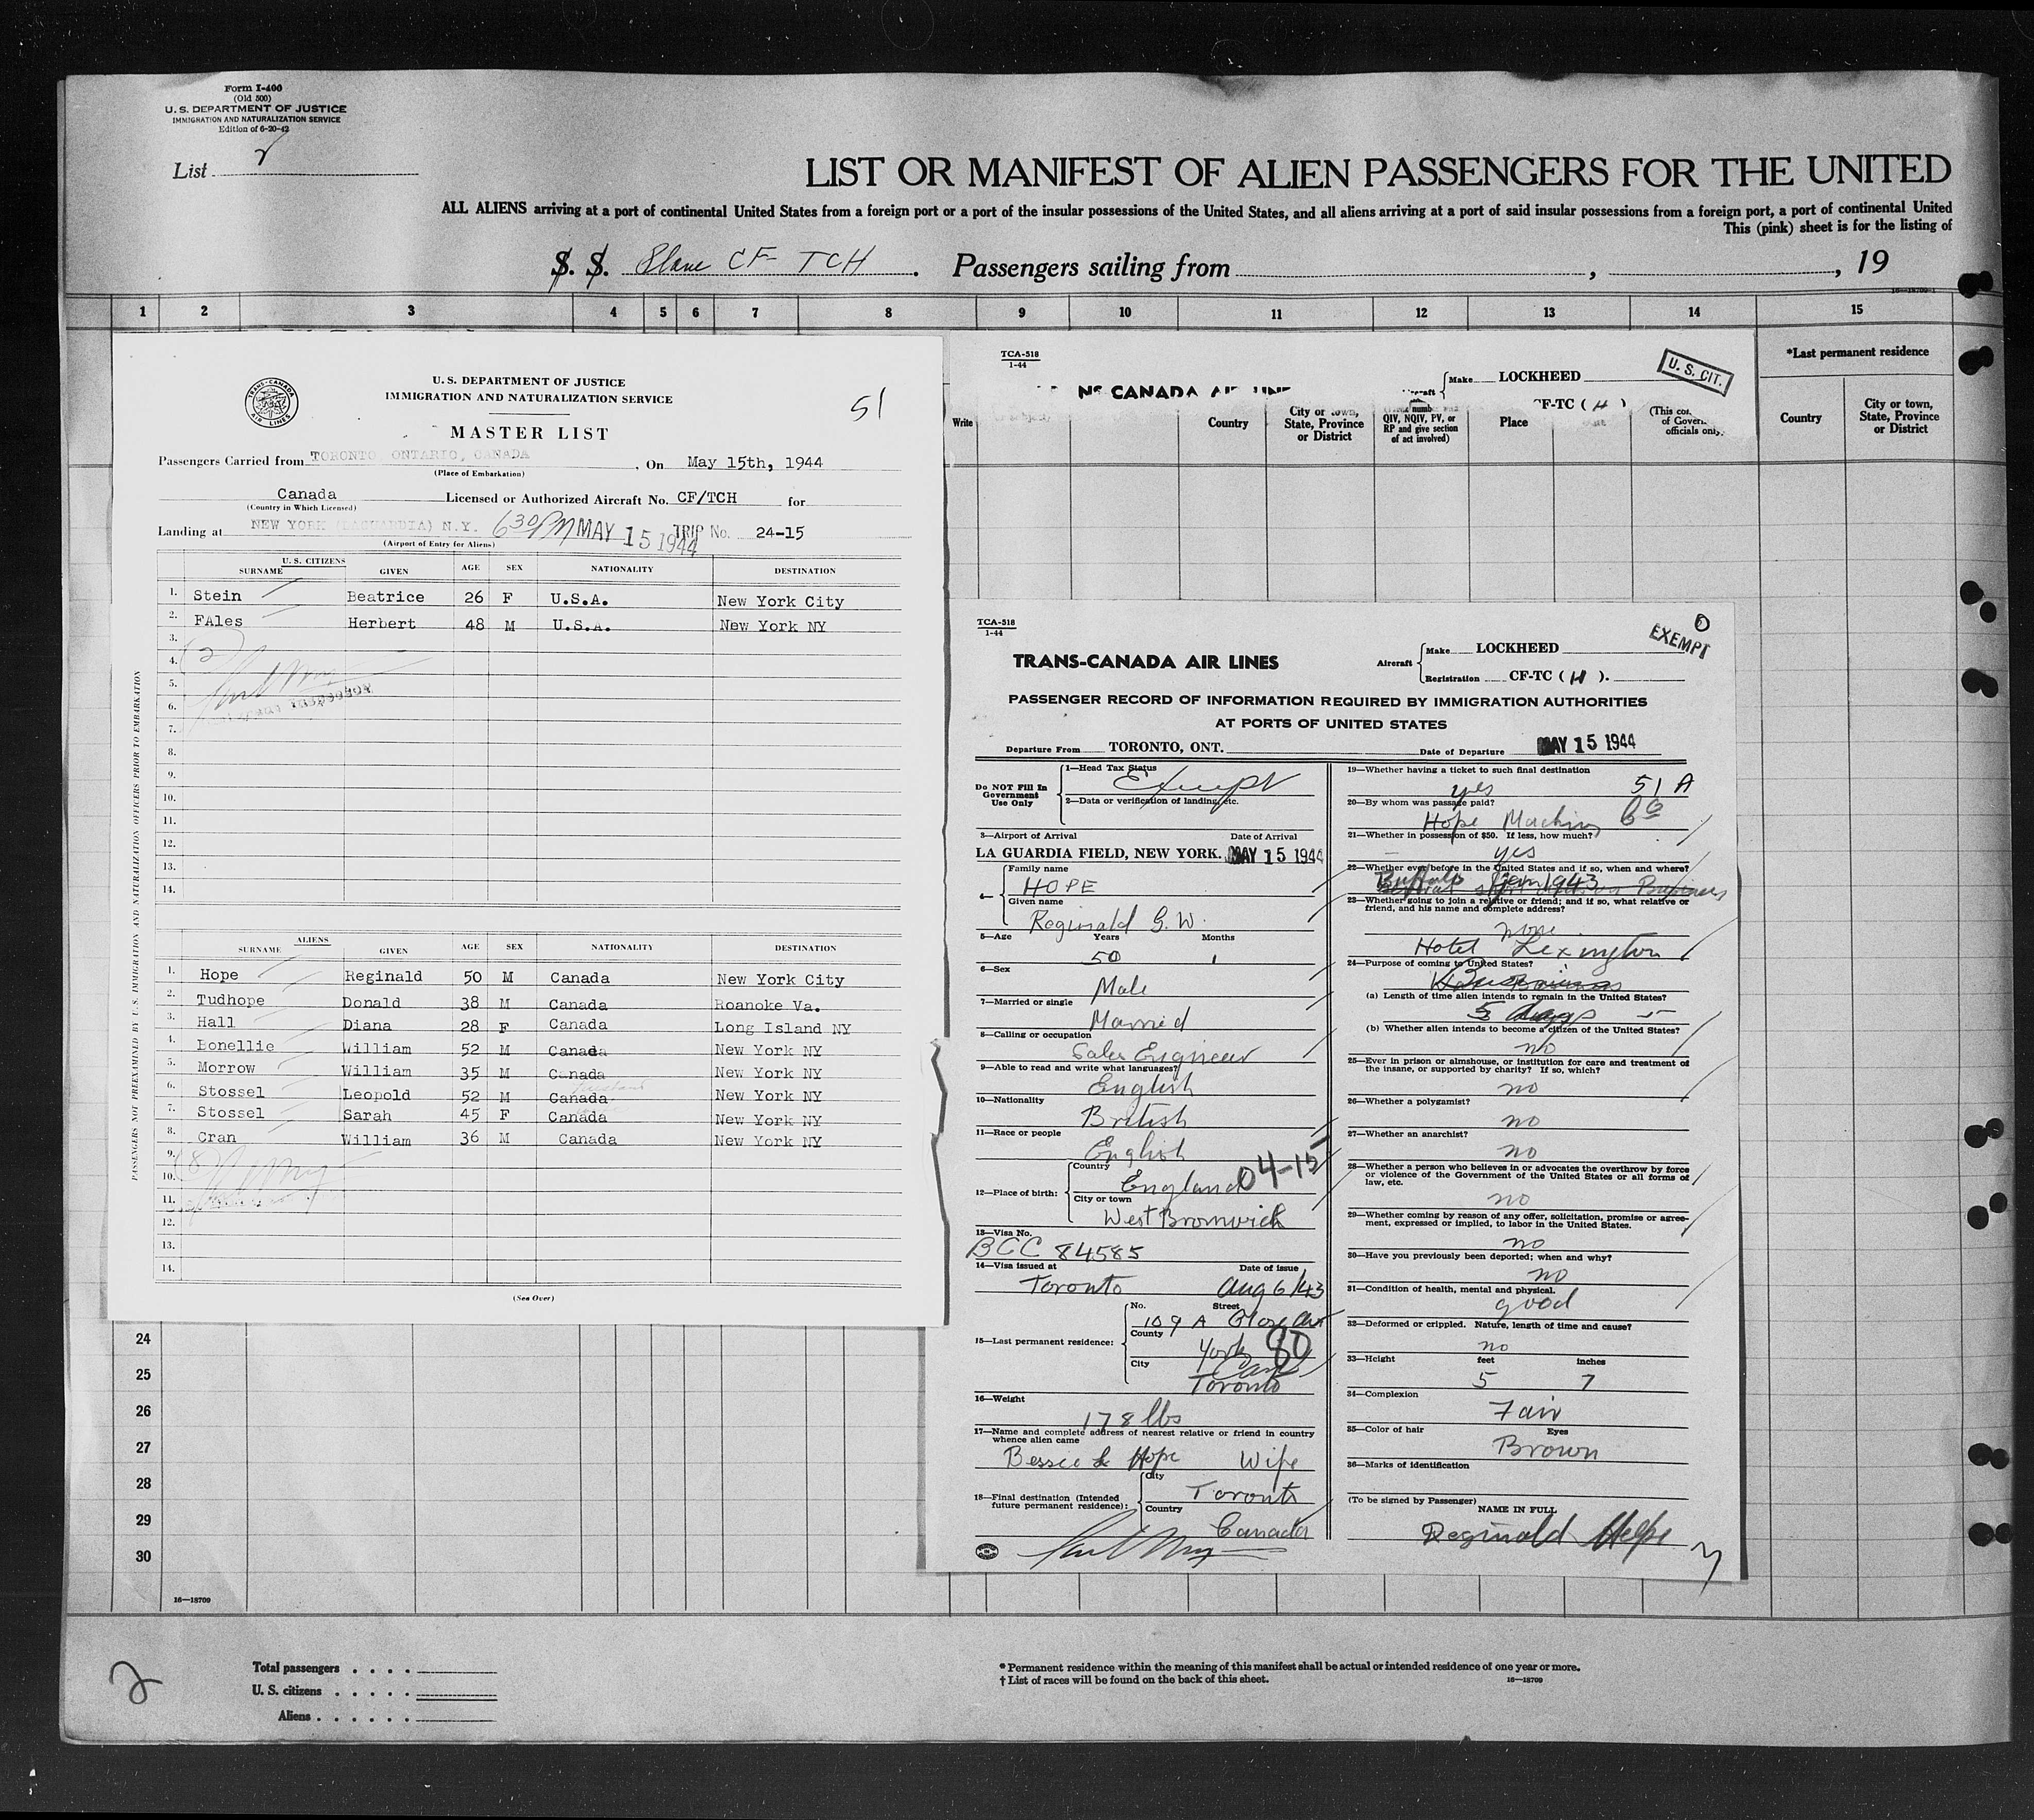 Form I-400
(Old 500)
U. S. DEPARTMENT OF JUSTICE
IMMIGRATION AND NATURALIZATION SERVICE
Edition of 6-20-42
List
LIST OR MANIFEST OF ALIEN PASSENGERS FOR THE UNITED
ALL ALIENS arriving at a port of continental United States from a foreign port or a port of the insular possessions of the United States, and all aliens arriving at a port of said insular possessions from a foreign port, a port of continental United
This (pink) sheet is for the listing of
S. S. Plane CF- TCH . Passengers sailing from , , 19
1 2 3 4 5 6 7 8 9 10 11 12 13 14 15
TRANS-CANADA AIR LINES
U. S. DEPARTMENT OF JUSTICE
IMMIGRATION AND NATURALIZATION SERVICE
51
MASTER LIST
Passengers Carried from TORONTO, ONTARIO, CANADA , On May 15th, 1944
(Place of Embarkation)
Canada Licensed or Authorized Aircraft No. CF/TCH for
(Country in Which Licensed)
Landing at NEW YORK (LAGUARDIA) N.Y. 630PM MAY 15 1944 TRIP No. 24-15
(Airport of Entry for Aliens)
U. S. CITIZENS
SURNAME GIVEN AGE SEX NATIONALITY DESTINATION
1. Stein Beatrice 26 F U.S.A. New York City
2. FAles Herbert 48 M U.S.A. New York NY
3.
4. (2)
5.
6.
7.
8.
9.
10.
11.
12.
13.
14.
ALIENS
SURNAME GIVEN AGE SEX NATIONALITY DESTINATION
1. Hope Reginald 50 M Canada New York City
2. Tudhope Donald 38 M Canada Roanoke Va.
3. Hall Diana 28 F Canada Long Island NY
4. Bonellie William 52 M Canada New York NY
5. Morrow William 35 M Canada New York NY
6. Stossel Leopold 52 M Canada New York NY
7. Stossel Sarah 45 F Canada New York NY
8. Cran William 36 M Canada New York NY
9. (8)
10.
11.
12.
13.
14.
(See Over)
PASSENGERS NOT PREEXAMINED BY U.S. IMMIGRATION AND NATURALIZATION OFFICERS PRIOR TO EMBARKATION
24
25
26
27
28
29
30
16—18709
TCA-518
1-44
Make LOCKHEED
U. S. CIT.
CF-TC ( H )
Write
Country
City or town, State, Province or District
QIV, NQIV, PV, or RP and give section of act involved)
Place
officials only
*Last permanent residence
Country
City or town, State, Province or District
TCA-518
1-44
EXEMPT
TRANS-CANADA AIR LINES
Aircraft Make LOCKHEED
Registration CF-TC ( H ).
PASSENGER RECORD OF INFORMATION REQUIRED BY IMMIGRATION AUTHORITIES
AT PORTS OF UNITED STATES
Departure From TORONTO, ONT. Date of Departure MAY 15 1944
Do NOT Fill In Government Use Only
1—Head Tax Status
Exempt
2—Data or verification of landing, etc.
3—Airport of Arrival Date of Arrival
LA GUARDIA FIELD, NEW YORK. MAY 15 1944
4— Family name
HOPE
Given name
Reginald G. W.
5—Age Years Months
50
6—Sex
Male
7—Married or single
Married
8—Calling or occupation
Sales Engineer
9—Able to read and write what languages?
English
10—Nationality
British
11—Race or people
English
12—Place of birth: Country
England 04-15
City or town
West Bromwich
13—Visa No.
BCC 84585
14—Visa issued at Date of issue
Toronto Aug 6/43
15—Last permanent residence: No. Street
109 A
County
York 80
City
Can
Toronto
16—Weight
178 lbs
17—Name and complete address of nearest relative or friend in country whence alien came
Hope Wife
18—Final destination (Intended future permanent residence): City
Toronto
Country
Canada
19—Whether having a ticket to such final destination
yes 51 A
20—By whom was passage paid?
Hope Machine Co
21—Whether in possession of $50. If less, how much?
yes
22—Whether ever before in the United States and if so, when and where?
Buffalo 1943
23—Whether going to join a relative or friend; and if so, what relative or friend, and his name and complete address?
none
Hotel Lexington
24—Purpose of coming to United States?
Business
(a) Length of time alien intends to remain in the United States?
5 days
(b) Whether alien intends to become a citizen of the United States?
no
25—Ever in prison or almshouse, or institution for care and treatment of the insane, or supported by charity? If so, which?
no
26—Whether a polygamist?
no
27—Whether an anarchist?
no
28—Whether a person who believes in or advocates the overthrow by force or violence of the Government of the United States or all forms of law, etc.
no
29—Whether coming by reason of any offer, solicitation, promise or agreement, expressed or implied, to labor in the United States.
no
30—Have you previously been deported; when and why?
no
31—Condition of health, mental and physical.
good
32—Deformed or crippled. Nature, length of time and cause?
no
33—Height feet inches
5 7
34—Complexion
Fair
35—Color of hair Eyes
Brown
36—Marks of identification
(To be signed by Passenger)
NAME IN FULL
Reginald Hope
2
Total passengers . . . .
U. S. citizens . . . . .
Aliens . . . . . .
* Permanent residence within the meaning of this manifest shall be actual or intended residence of one year or more.
† List of races will be found on the back of this sheet.
16—18709